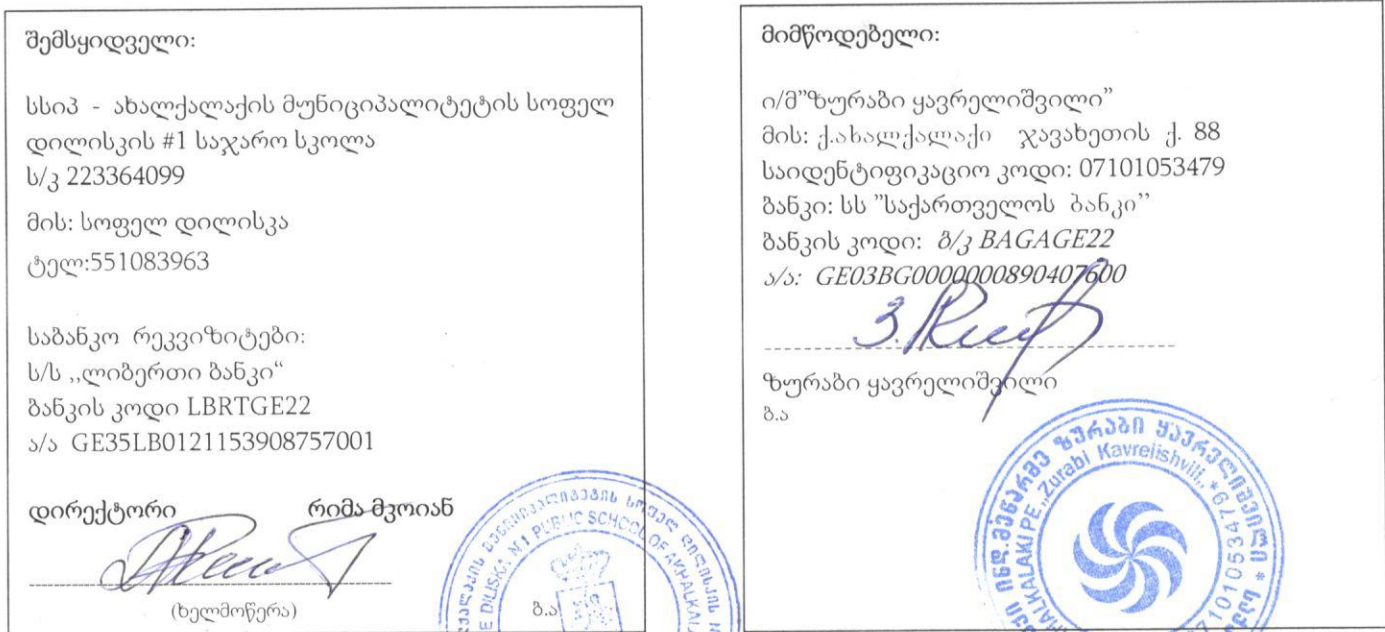 შემსყიდველი:
სსიპ - ახალქალაქის მუნიციპალიტეტის სოფელ
დილისკის #1 საჯარო სკოლა
ს/კ 223364099
მის: სოფელ დილისკა
ტელ:551083963
საბანკო რეკვიზიტები:
ს/ს ,,ლიბერთი ბანკი“
ბანკის კოდი LBRTGE22
ა/ა GE35LB0121153908757001
დირექტორი რიმა მკოიან
(ხელმოწერა)
ბ.ა
მიმწოდებელი:
ი/მ”ზურაბი ყავრელიშვილი”
მის: ქ.ახალქალაქი ჯავახეთის ქ. 88
საიდენტიფიკაციო კოდი: 07101053479
ბანკი: სს ”საქართველოს ბანკი’’
ბანკის კოდი: ბ/კ BAGAGE22
ა/ა: GE03BG0000000890407600
ზურაბი ყავრელიშვილი
ბ.ა
DILISKA N.1 PUBLIC SCHOOL OF AKHALKAL
ინდ.მეწარმე ზურაბი ყავრელიშვილი *
HALKALAKI PE ,,Zurabi Kavrelishvili,, * 7101053479